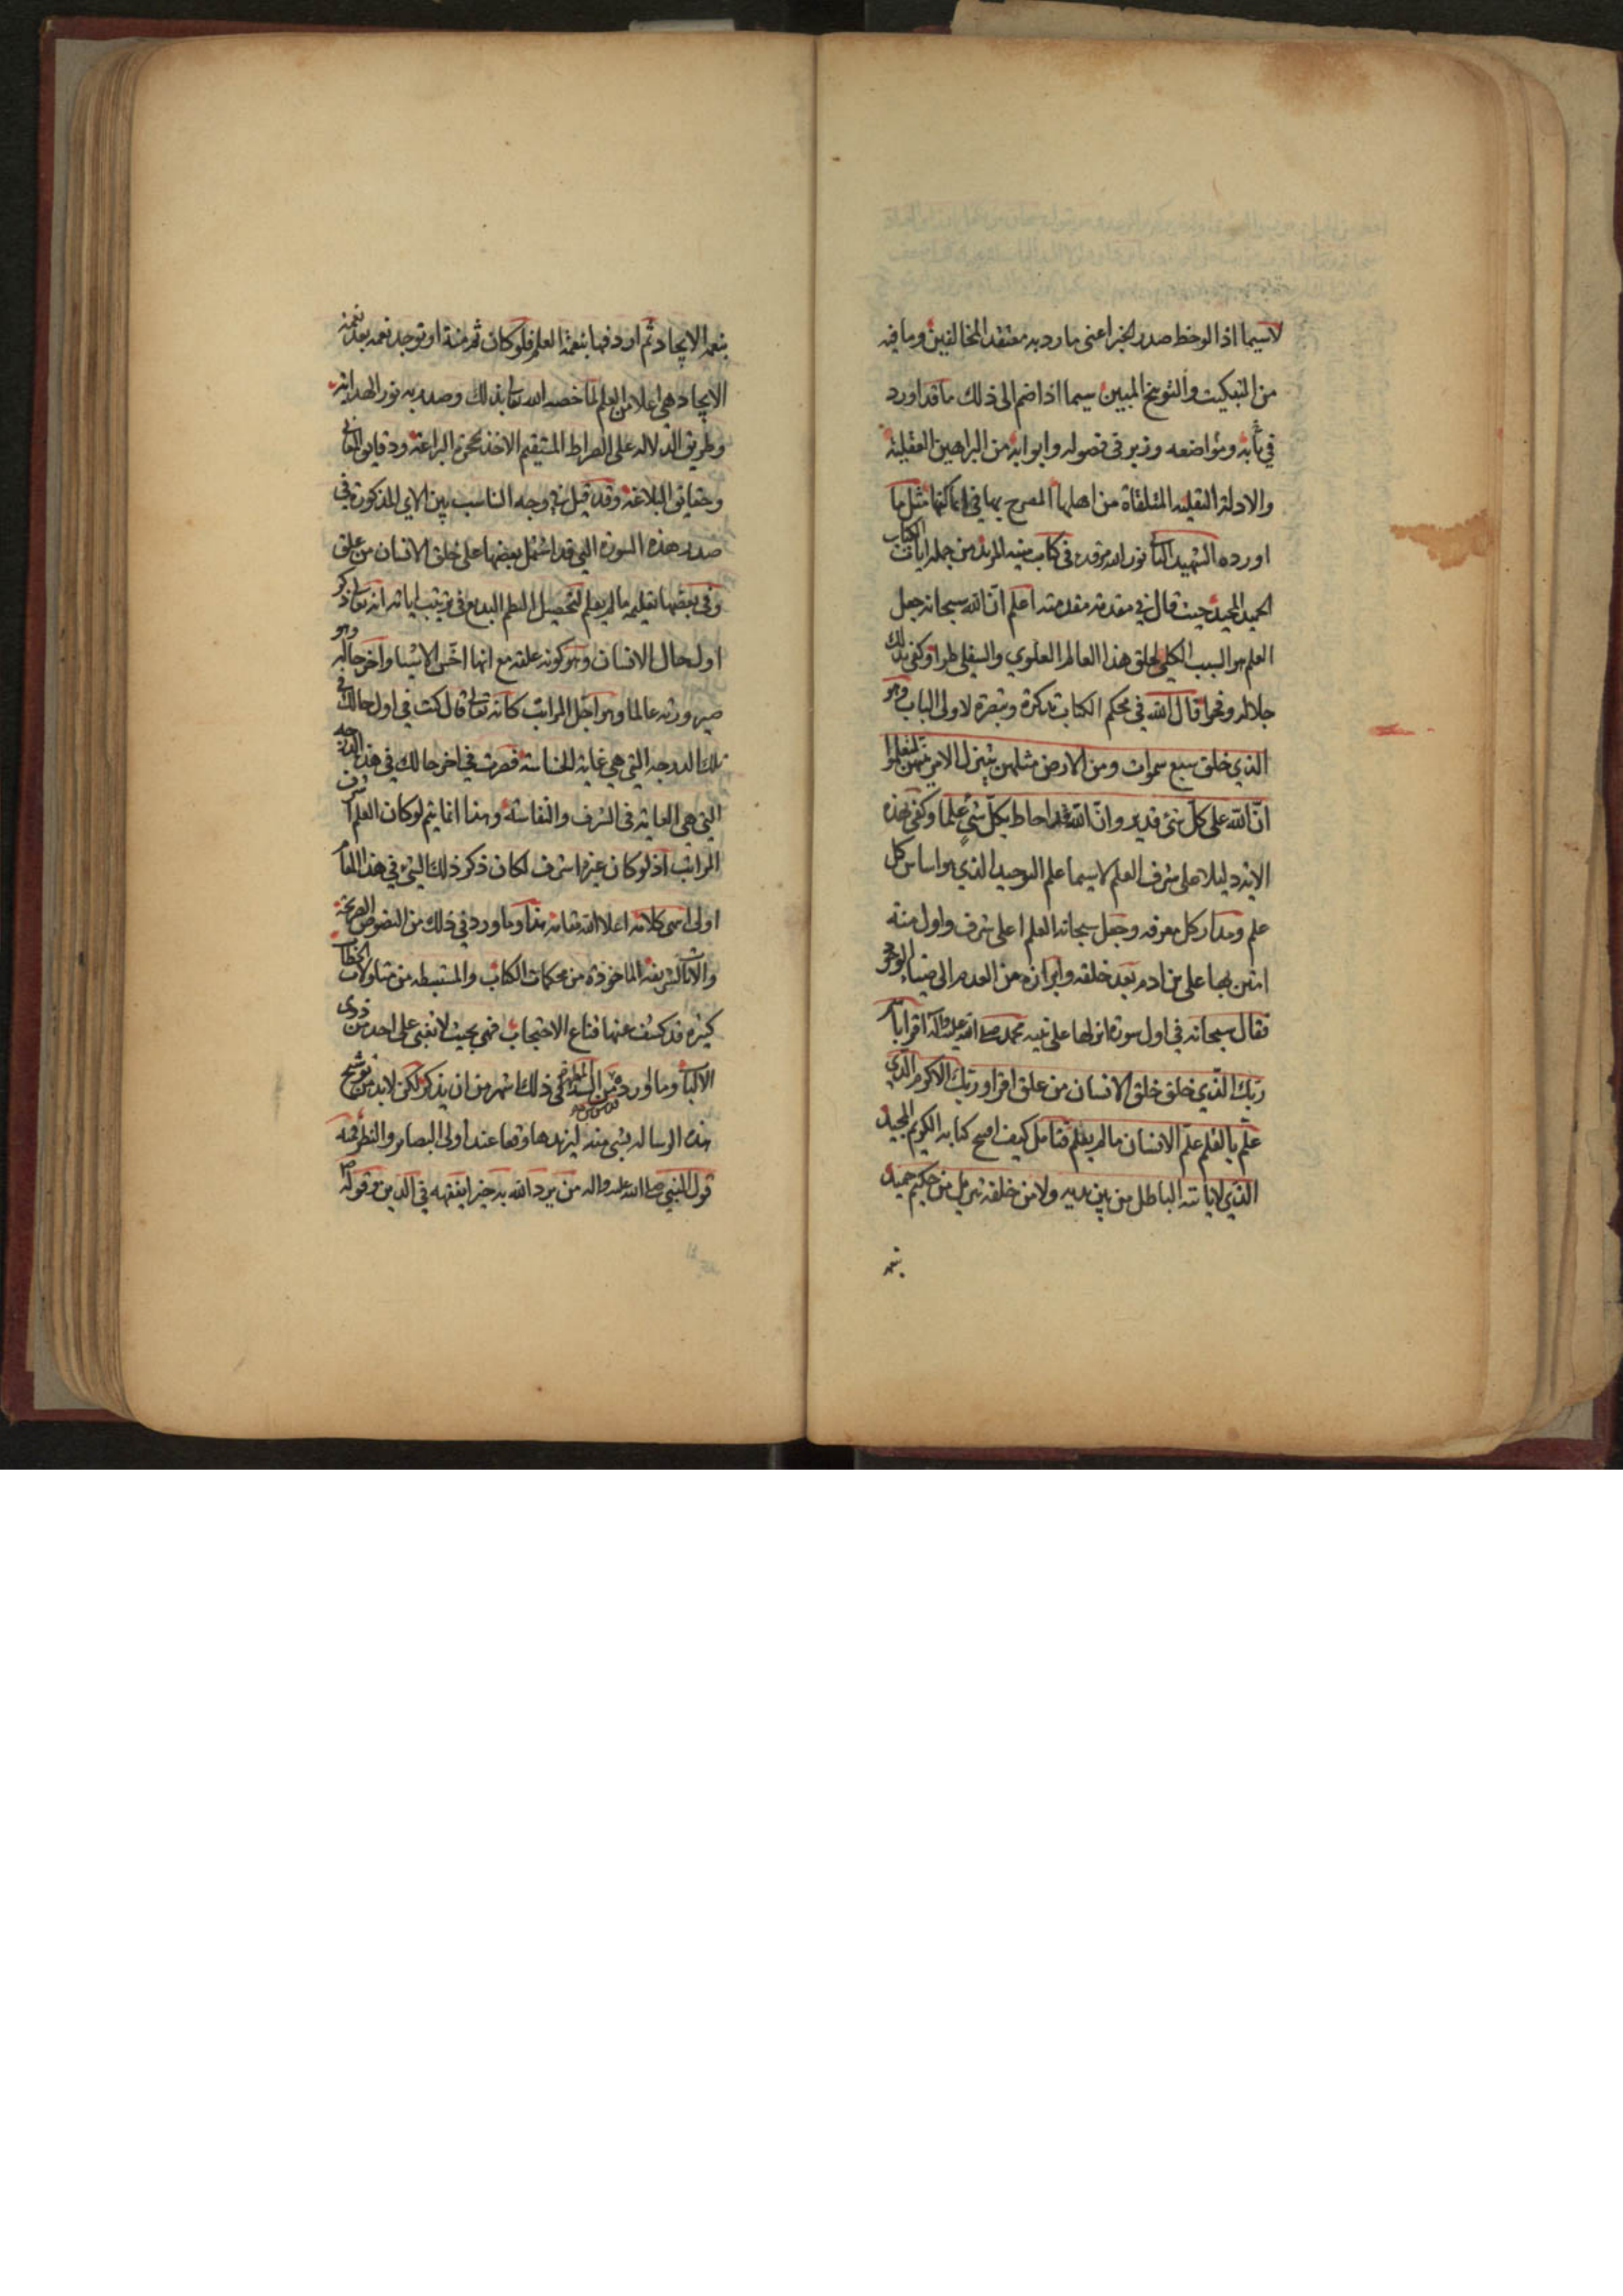 لاسيما اذا لوحظ صدر الخبر اعنى ما رد به معتقد المخالفين وما فيه
من التبكيت والتوبيخ المبين سيما اذا ضم الى ذلك ما قد اورد
في ومواضعه وزبر في فصوله وابوابه من البراهين العقلية
والادلة النقلية المتلقاة من اهلها المصرح بها في اماكنها مثل ما
اورده الشهيد الثاني نور الله مرقده في كتاب منية المريد من جملة ايات الكتاب
الحميد المجيد حيث قال في مقدمة مقدمته اعلم ان الله سبحانه جعل
العلم هو السبب الكلي لخلق هذا العالم العلوي والسفلي طرا وكفى بذلك
جلالة وفخرا قال الله في محكم الكتاب تذكرة وتبصرة لاولى الالباب وهو
الذي خلق سبع سموات ومن الارض مثلهن يتنزل الامر بينهن لتعلموا
ان الله على كل شئ قدير وان الله قد احاط بكل شئ علما وكفى بهذه
الاية دليلا على شرف العلم لاسيما علم التوحيد الذي هو اساس كل
علم ومدار كل معرفه وجعل سبحانه العلم اعلى شرف واول منة
امتن بها على بن ادم بعد خلقه وابرازه من العدم الى ضياء الوجود
فقال سبحانه في اول سورة انزلها على نبيه محمد صلى الله عليه وآله اقرا باسم
ربك الذي خلق خلق الانسان من علق اقرا وربك الاكرم الذي
علم بالقلم علم الانسان ما لم يعلم فتامل كيف افتتح كتابه الكريم المجيد
الذي لا ياتيه الباطل من بين يديه ولا من خلفه تنزيل من حكيم حميد
بنعمة
بنعمة الايجاد ثم اردفها بنعمة العلم فلو كان ثم منة او توجد نعمه بعد نعمة
الايجاد هي اعلا من العلم لما خصه الله تعالى بذلك وصدر به نور الهداية
وطريق الدلاله على الصراط المستقيم الاخذ بحجزة البراعة ودقايق المعاني
وحقايق البلاغة وقد قيل في وجه التناسب بين الاي المذكورة في
صدر هذه السورة التي قد اشتمل بعضها على خلق الانسان من علق
وفي بعضها تعليمه ما لم يعلم لتحصيل النظم البديع في ترتيب اياته انه تعالى ذكر
اول حال الانسان وهو كونه علقه مع انها اخس الاشيا واخر حاله وهو
صيرورته عالما وهو اجل المراتب كانه تعالى قال كنت في اول حالك في
تلك الدرجه التي هي غاية الخساسة فصرت في اخر حالك في هذه الدرجه
التي هي الغايه في الشرف والنفاسة وهذا انما يتم لو كان العلم اشرف
المراتب اذ لو كان غيره اشرف لكان ذكر ذلك الشئ في هذا المقام
اولى انتهى كلامه اعلا الله مقامه هذا وما ورد في ذلك من النصوص الصريحة
والايات الشريفه الماخوذة من محكمات الكتاب والمستنبطه من متناولات الخطاب
كثيره قد كشف عنها قناع الاحتجاب فهي بحيث لا تخفى على احد من ذوى
الالباب وما ورد من السنة المطهرة في ذلك اشهر من ان يذكر لكن لابد من توشيح
هذه الرساله بشئ منه ليزيدها وقعا عند اولى البصاير والنظر فمنه
قول النبي صلى الله عليه واله من يرد الله به خيرا يفقهه في الدين وقوله